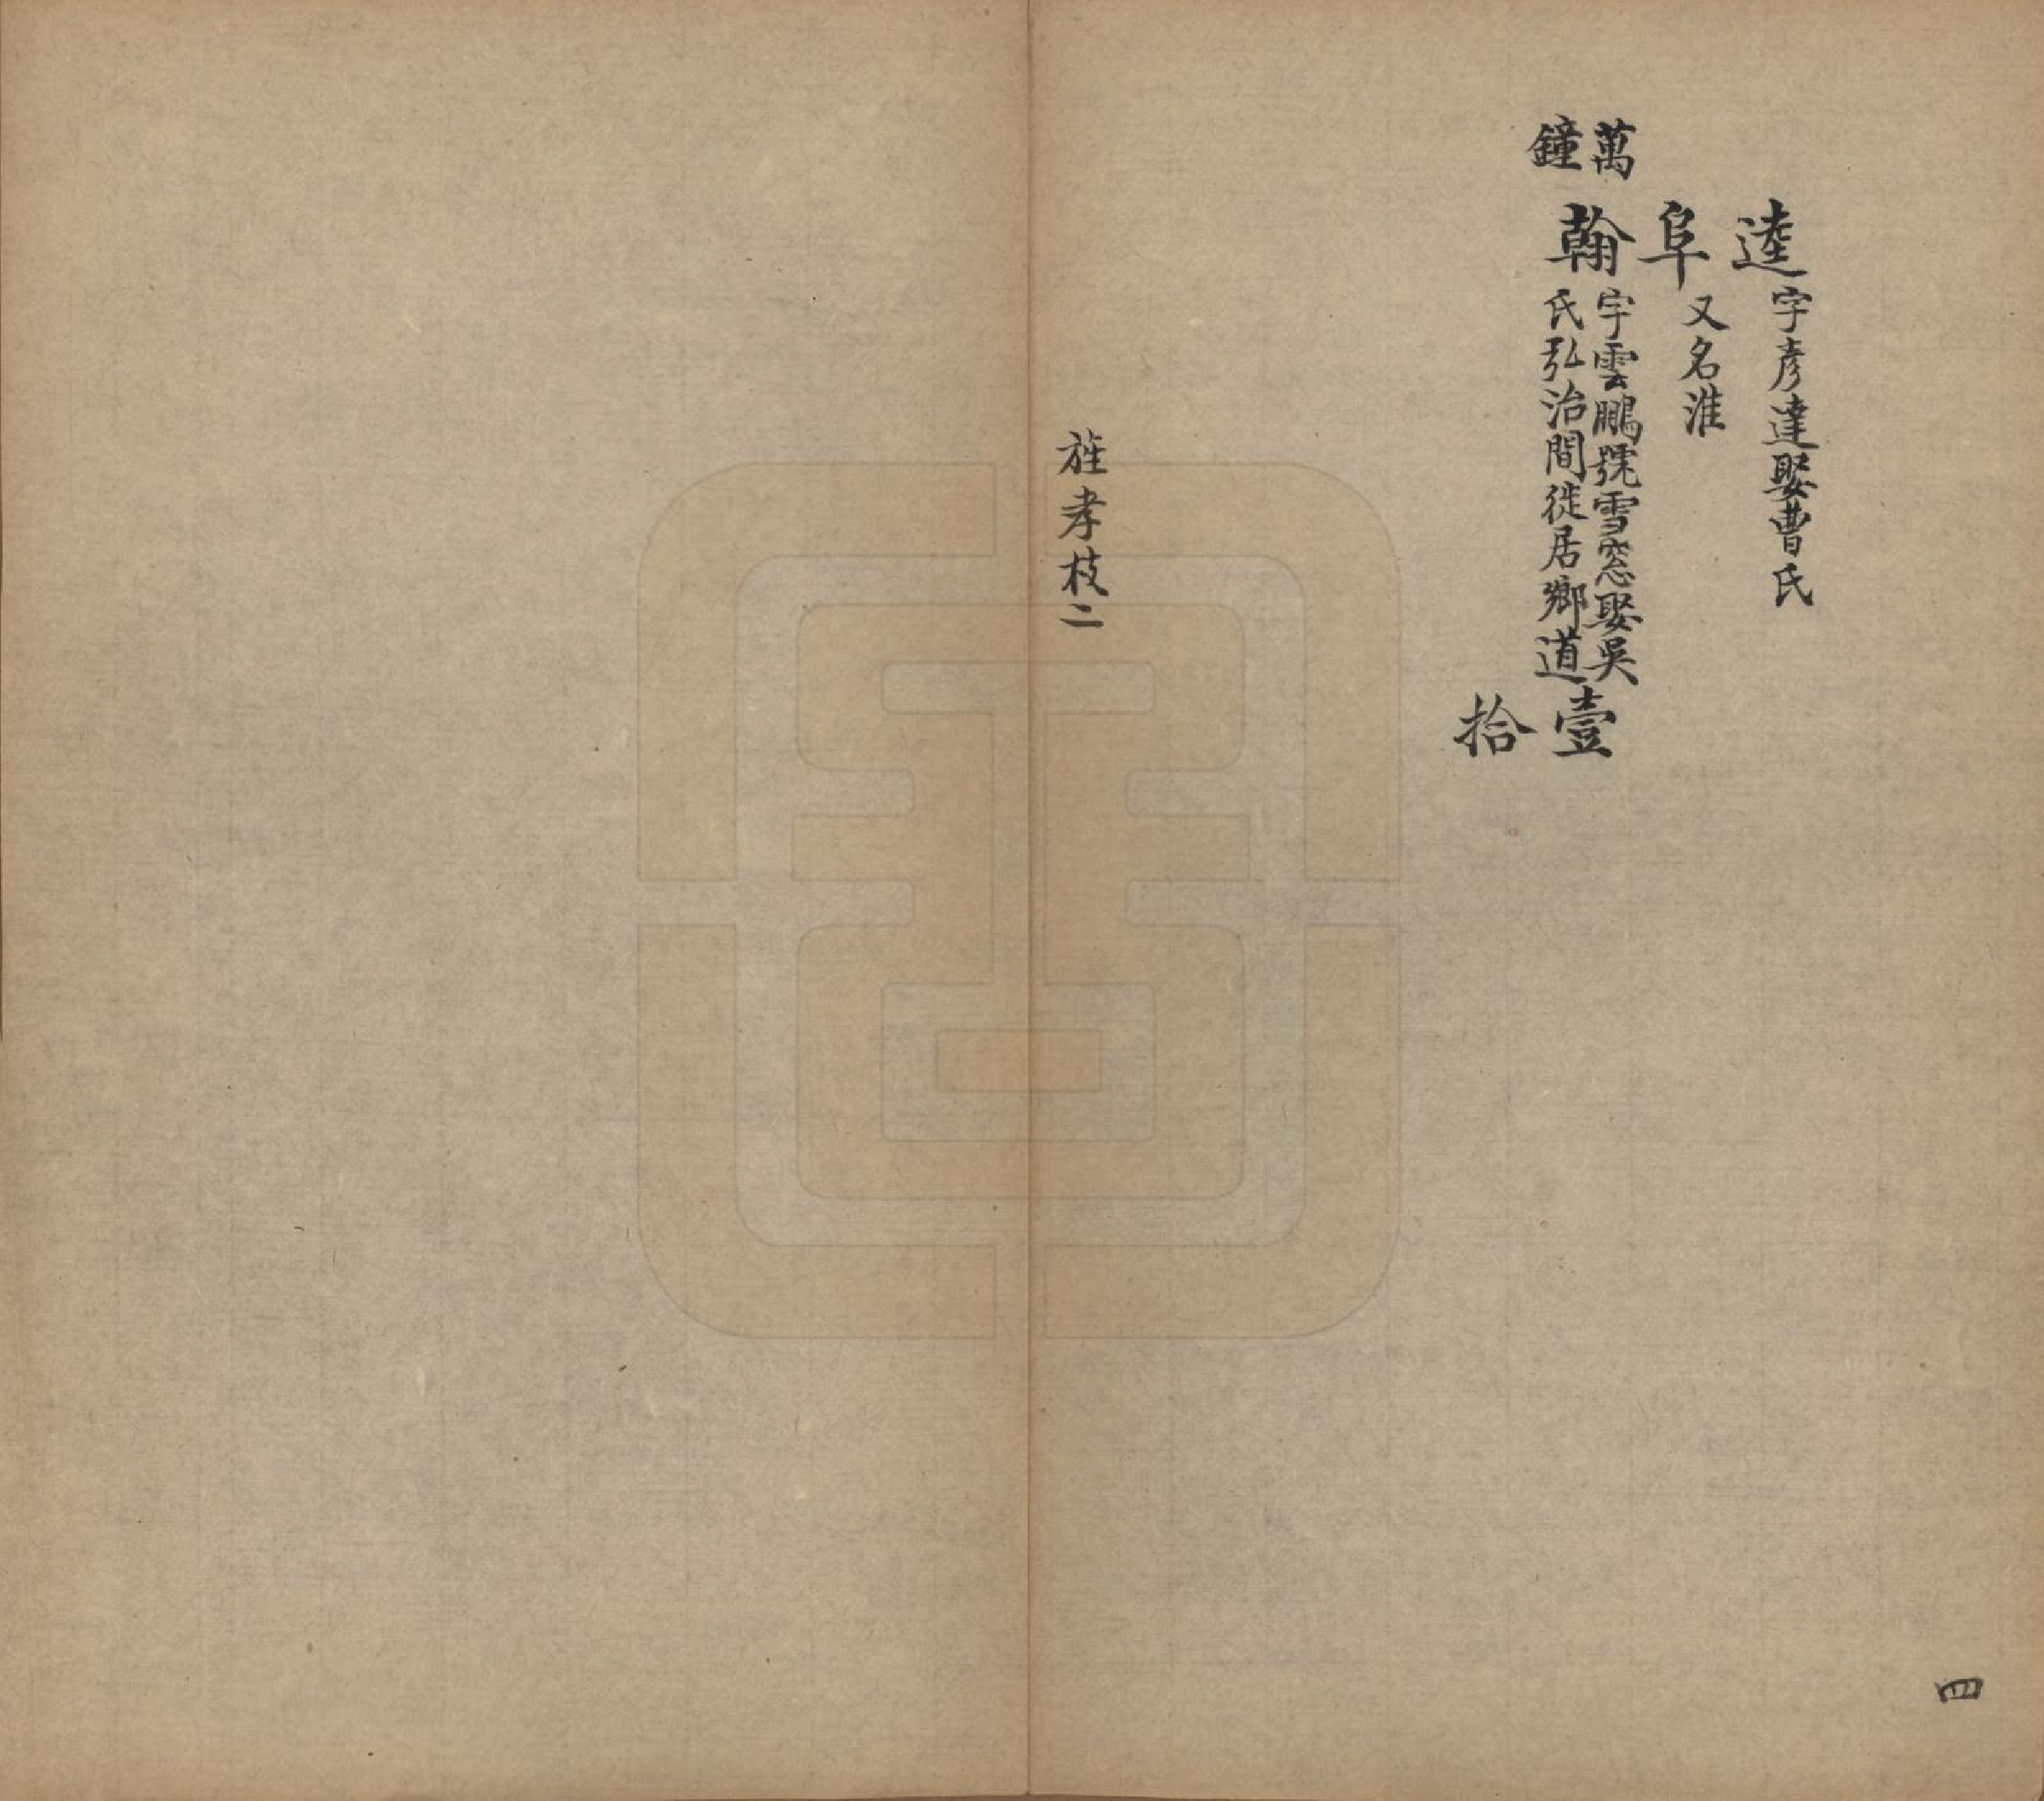 逵字彥達娶曹氏
阜又名淮
萬
鐘
翰字雲鵬號雪窓娶吳
氏弘治間徙居鄉道
壹
拾
旌孝枝二
四